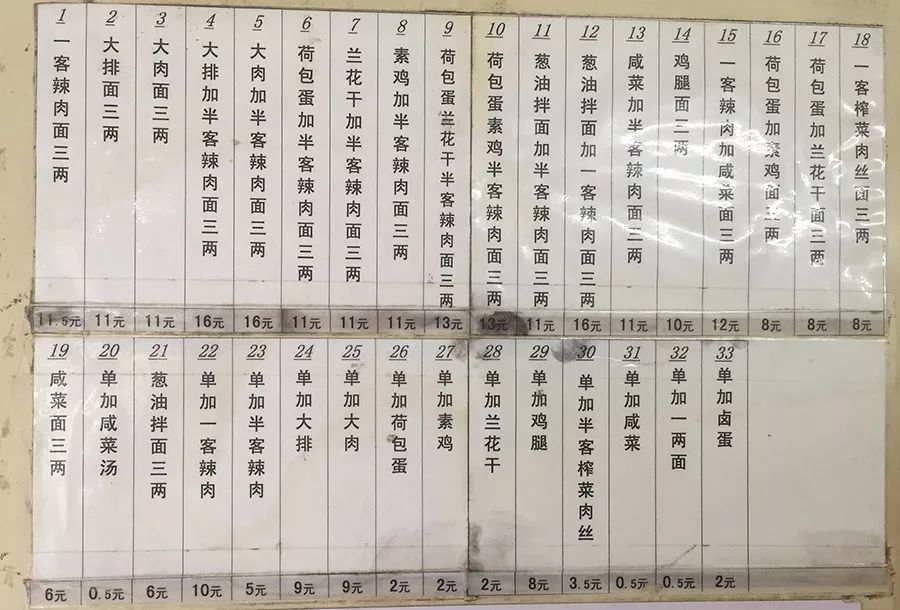 1 一客辣肉面三两 11.5元
2 大排面三两 11元
3 大肉面三两 11元
4 大排加半客辣肉面三两 16元
5 大肉加半客辣肉面三两 16元
6 荷包蛋加半客辣肉面三两 11元
7 兰花干加半客辣肉面三两 11元
8 素鸡加半客辣肉面三两 11元
9 荷包蛋兰花干半客辣肉面三两 13元
10 荷包蛋素鸡半客辣肉面三两 13元
11 葱油拌面加半客辣肉面三两 11元
12 葱油拌面加一客辣肉面三两 16元
13 咸菜加半客辣肉面三两 11元
14 鸡腿面三两 10元
15 一客辣肉加咸菜面三两 12元
16 荷包蛋加素鸡面三两 8元
17 荷包蛋加兰花干面三两 8元
18 一客榨菜肉丝面三两 8元
19 咸菜面三两 6元
20 单加咸菜汤 0.5元
21 葱油拌面三两 6元
22 单加一客辣肉 10元
23 单加半客辣肉 5元
24 单加大排 9元
25 单加大肉 9元
26 单加荷包蛋 2元
27 单加素鸡 2元
28 单加兰花干 2元
29 单加鸡腿 8元
30 单加半客榨菜肉丝 3.5元
31 单加咸菜 0.5元
32 单加一两面 0.5元
33 单加卤蛋 2元